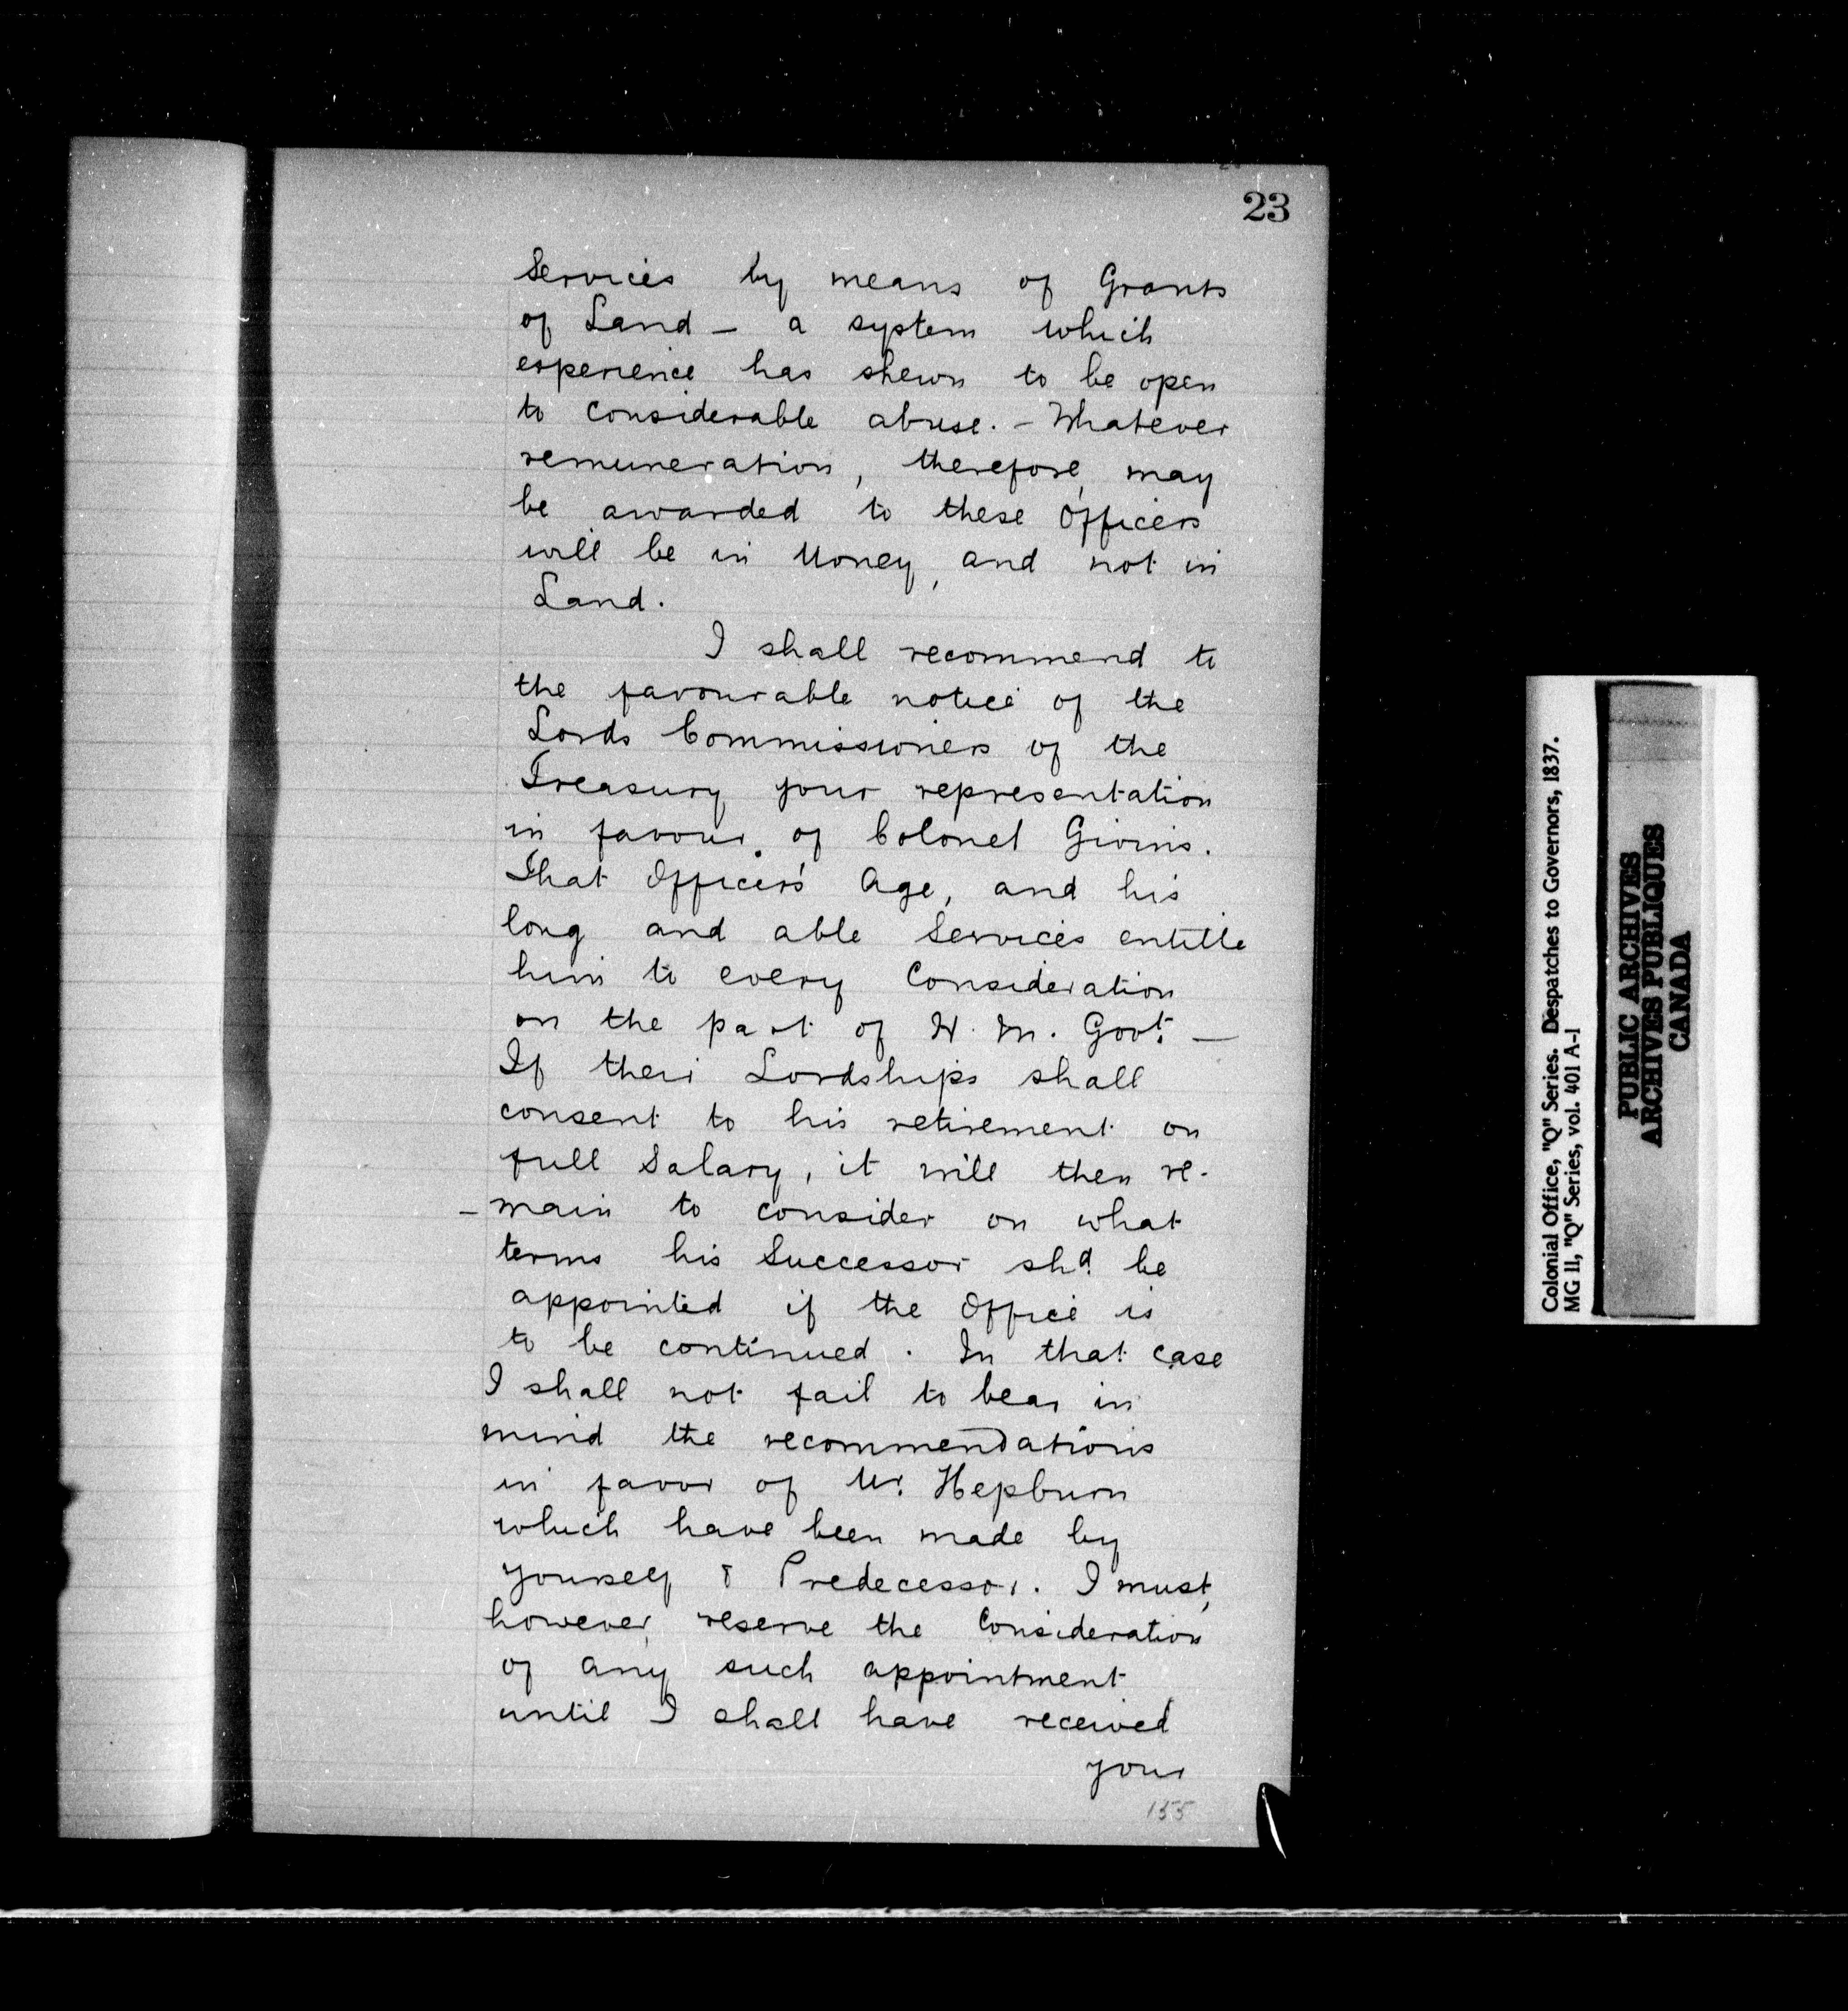 23
Services by means of Grants
of Land - a system which
experience has shewn to be open
to Considerable abuse. - Whatever
remuneration, therefore, may
be awarded to these Officers
will be in Money, and not in
Land.
I shall recommend to
the favourable notice of the
Lords Commissioners of the
Treasury your representation
in favour of Colonel Givins.
That Officer's Age, and his
long and able Services entitle
him to every Consideration
on the part of H. M. Govt. -
If their Lordships shall
consent to his retirement on
full Salary, it will then re-
-main to consider on what
terms his Successor shd. be
appointed if the Office is
to be continued. In that case
I shall not fail to bear in
mind the recommendations
in favor of Mr. Hepburn
which have been made by
yourself & Predecessor. I must,
however, reserve the Consideration
of any such appointment
until I shall have received
your
155
Colonial Office, "Q" Series. Despatches to Governors, 1837.
MG 11, "Q" Series, vol. 401 A-1
PUBLIC ARCHIVES
ARCHIVES PUBLIQUES
CANADA